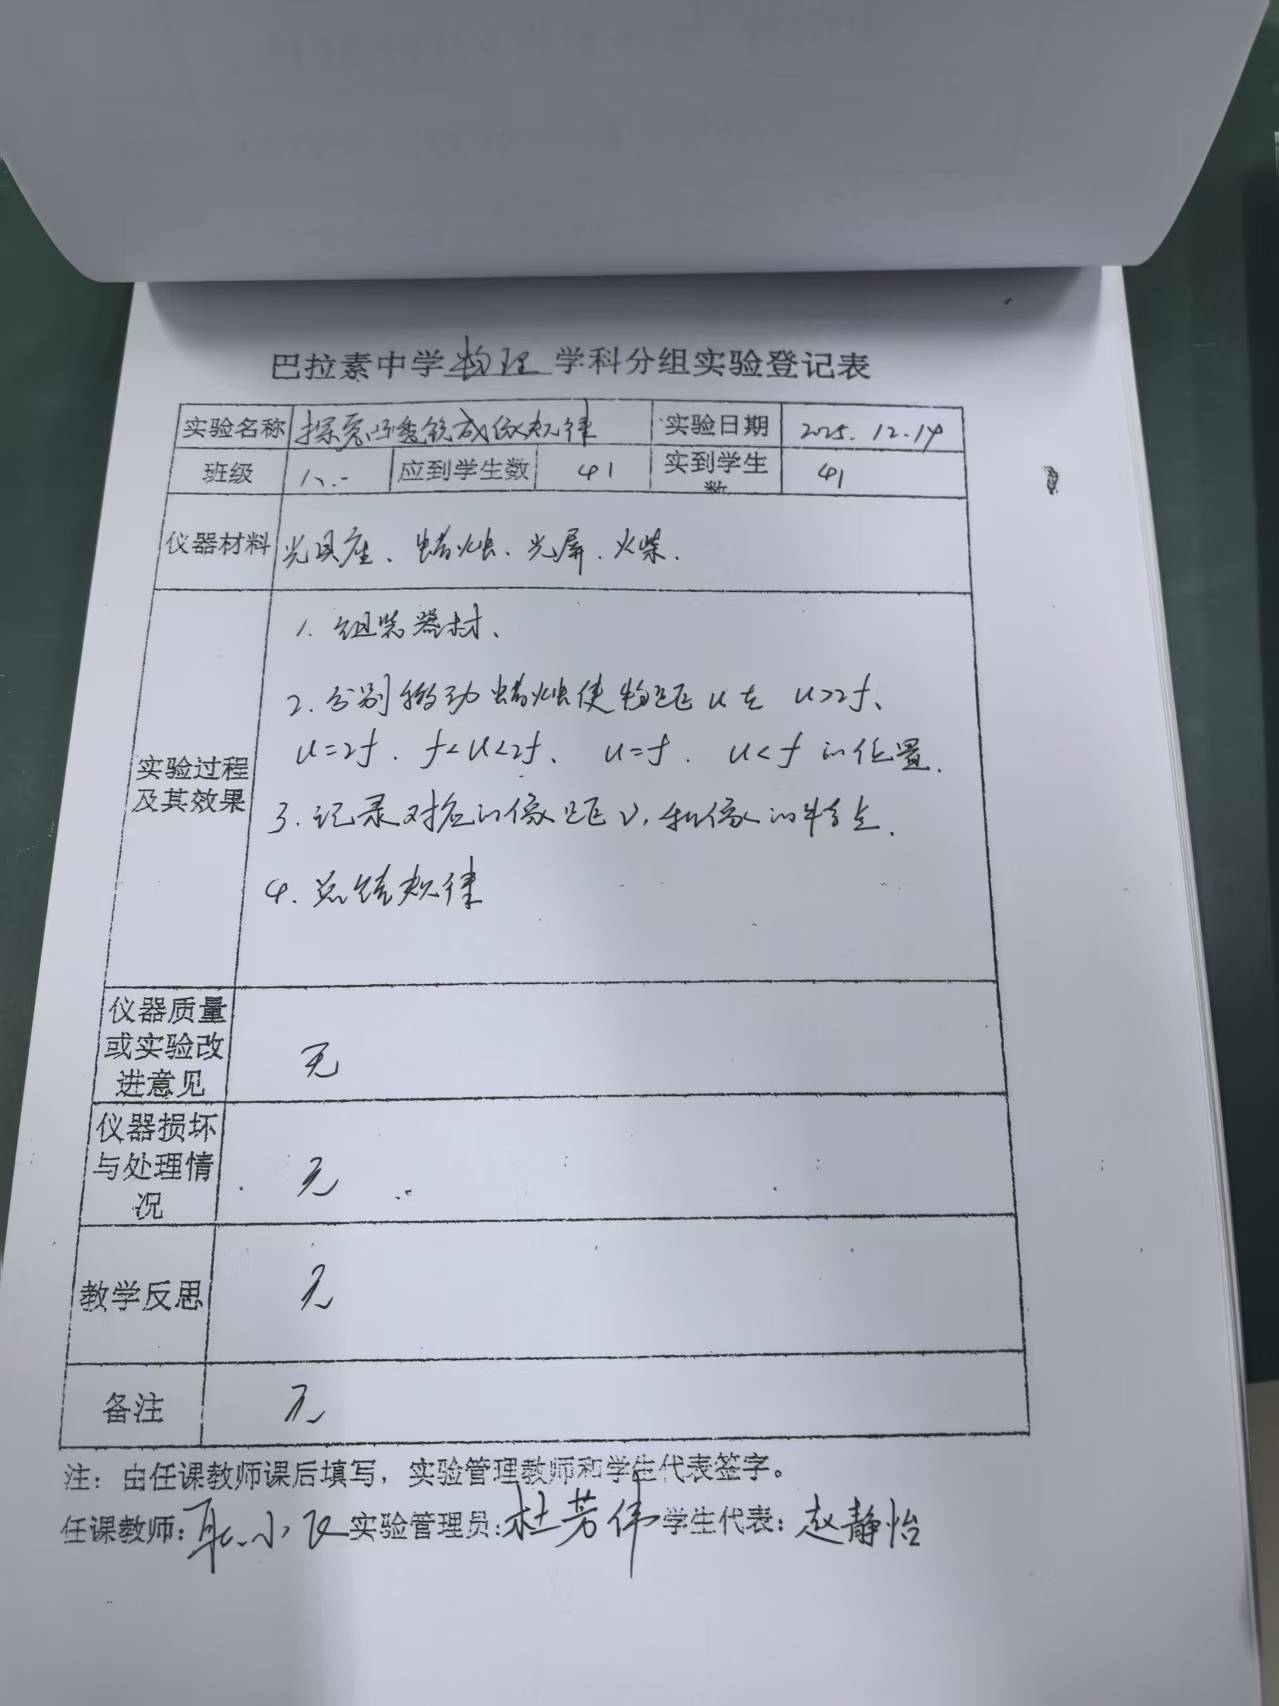 巴拉素中学物理学科分组实验登记表
实验名称 探究凸透镜成像规律 实验日期 2025.12.14
班级 八.一 应到学生数 41 实到学生数 41
仪器材料 光具座、蜡烛、光屏、火柴.
实验过程及其效果
1. 组装器材、
2. 分别移动蜡烛使物距u在 u>2f、
u=2f. f<u<2f、 u=f. u<f的位置.
3. 记录对应的像距v,和像的特点.
4. 总结规律
仪器质量或实验改进意见 无
仪器损坏与处理情况 无
教学反思 无
备注 无
注：由任课教师课后填写，实验管理教师和学生代表签字。
任课教师: 耿小 实验管理员: 杜芳伟 学生代表: 赵静怡